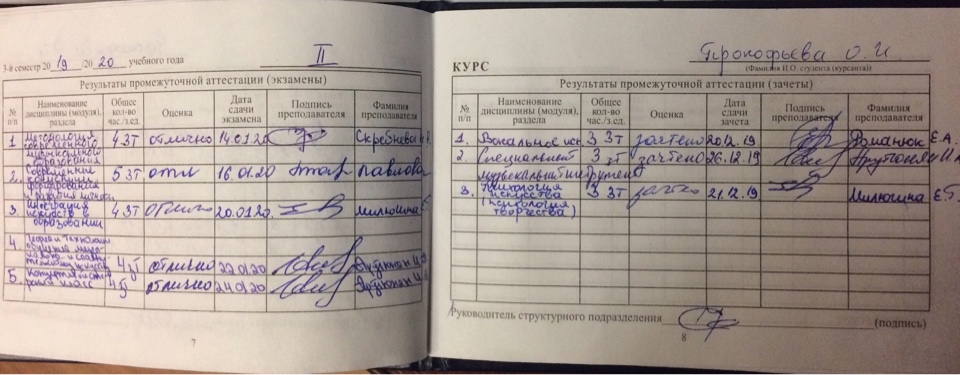 3-й семестр 20 19 /20 20 учебного года II
Результаты промежуточной аттестации (экзамены)
№ п/п Наименование дисциплины (модуля), раздела Общее кол-во час./з.ед. Оценка Дата сдачи экзамена Подпись преподавателя Фамилия преподавателя
1 Методология современного музыкального образования 4 ЗТ отлично 14.01.20 Скребнева
2. Современные концепции 5 ЗТ отл 16.01.20 Павлова
3. Интеграция искусств в образовании 4 ЗТ 20.01.20. Милюшина
4. Теория и технологии обучения 4 ЗТ отлично 22.01.20
5. класс 4 отлично 24.01.20
7
КУРС Прокофьева О. И.
(Фамилия И.О. студента (курсанта))
Результаты промежуточной аттестации (зачеты)
№ п/п Наименование дисциплины (модуля), раздела Общее кол-во час./з.ед. Оценка Дата сдачи зачета Подпись преподавателя Фамилия преподавателя
1. Вокальное иск. 3 ЗТ зачтено 20.12.19 Романюк Е.А.
2. Специальный музыкальный инструмент 3 ЗТ зачтено 26.12.19
3. Психология искусства (психология творчества) 3 ЗТ 21.12.19 Милюшина Е.Б.
Руководитель структурного подразделения (подпись)
8